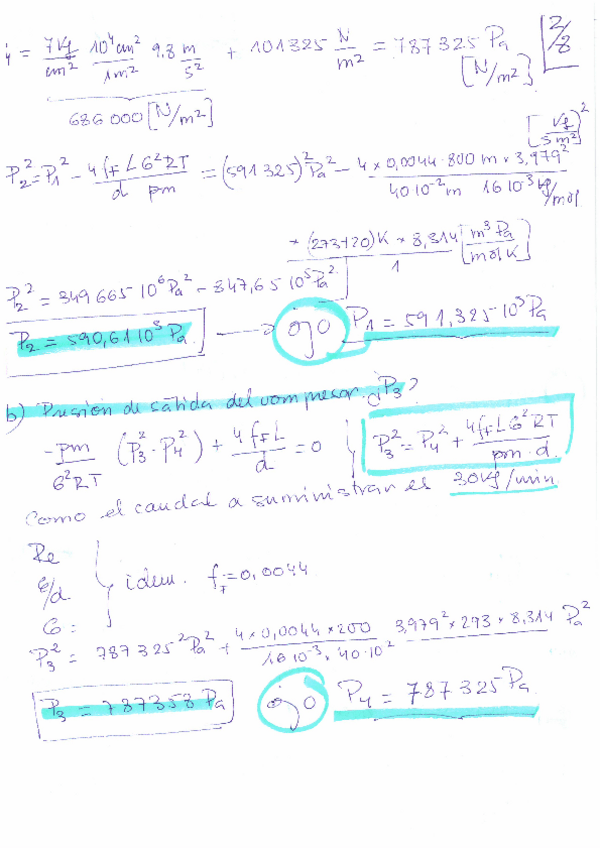 4 = 7 Kg/cm² 10⁴cm²/1m² 9.8 m/s² + 101325 N/m² = 787325 Pa [N/m²]
2/8
686 000 [N/m²]
P₂² = P₁² - 4 f_F L G² R T / d pm = (591 325)² Pa² - 4 × 0,0044 · 800 m × 3,979² [Kg/s m²]² / 40 10⁻² m 16 10⁻³ Kg/mol
× (273+20) K × 8,314 / 1 [m³ Pa / mol K]
P₂² = 349 665 10⁶ Pa² - 347,65 10⁵ Pa²
P₂ = 590,61 10³ Pa → ojo P₁ = 591,325 10³ Pa
b) Presión de salida del compresor ¿P₃?
- pm / G² R T (P₃² - P₄²) + 4 f_F L / d = 0 P₃² = P₄² + 4 f_F L G² R T / pm · d.
Como el caudal a suministrar es 30 Kg/min
Re
ε/d. idem. f_F = 0,0044
G =
P₃² = 787 325² Pa² + 4 × 0,0044 × 200 / 16 10⁻³ × 40 · 10² 3,979² × 293 × 8,314 Pa²
P₃ = 787358 Pa ojo P₄ = 787 325 Pa